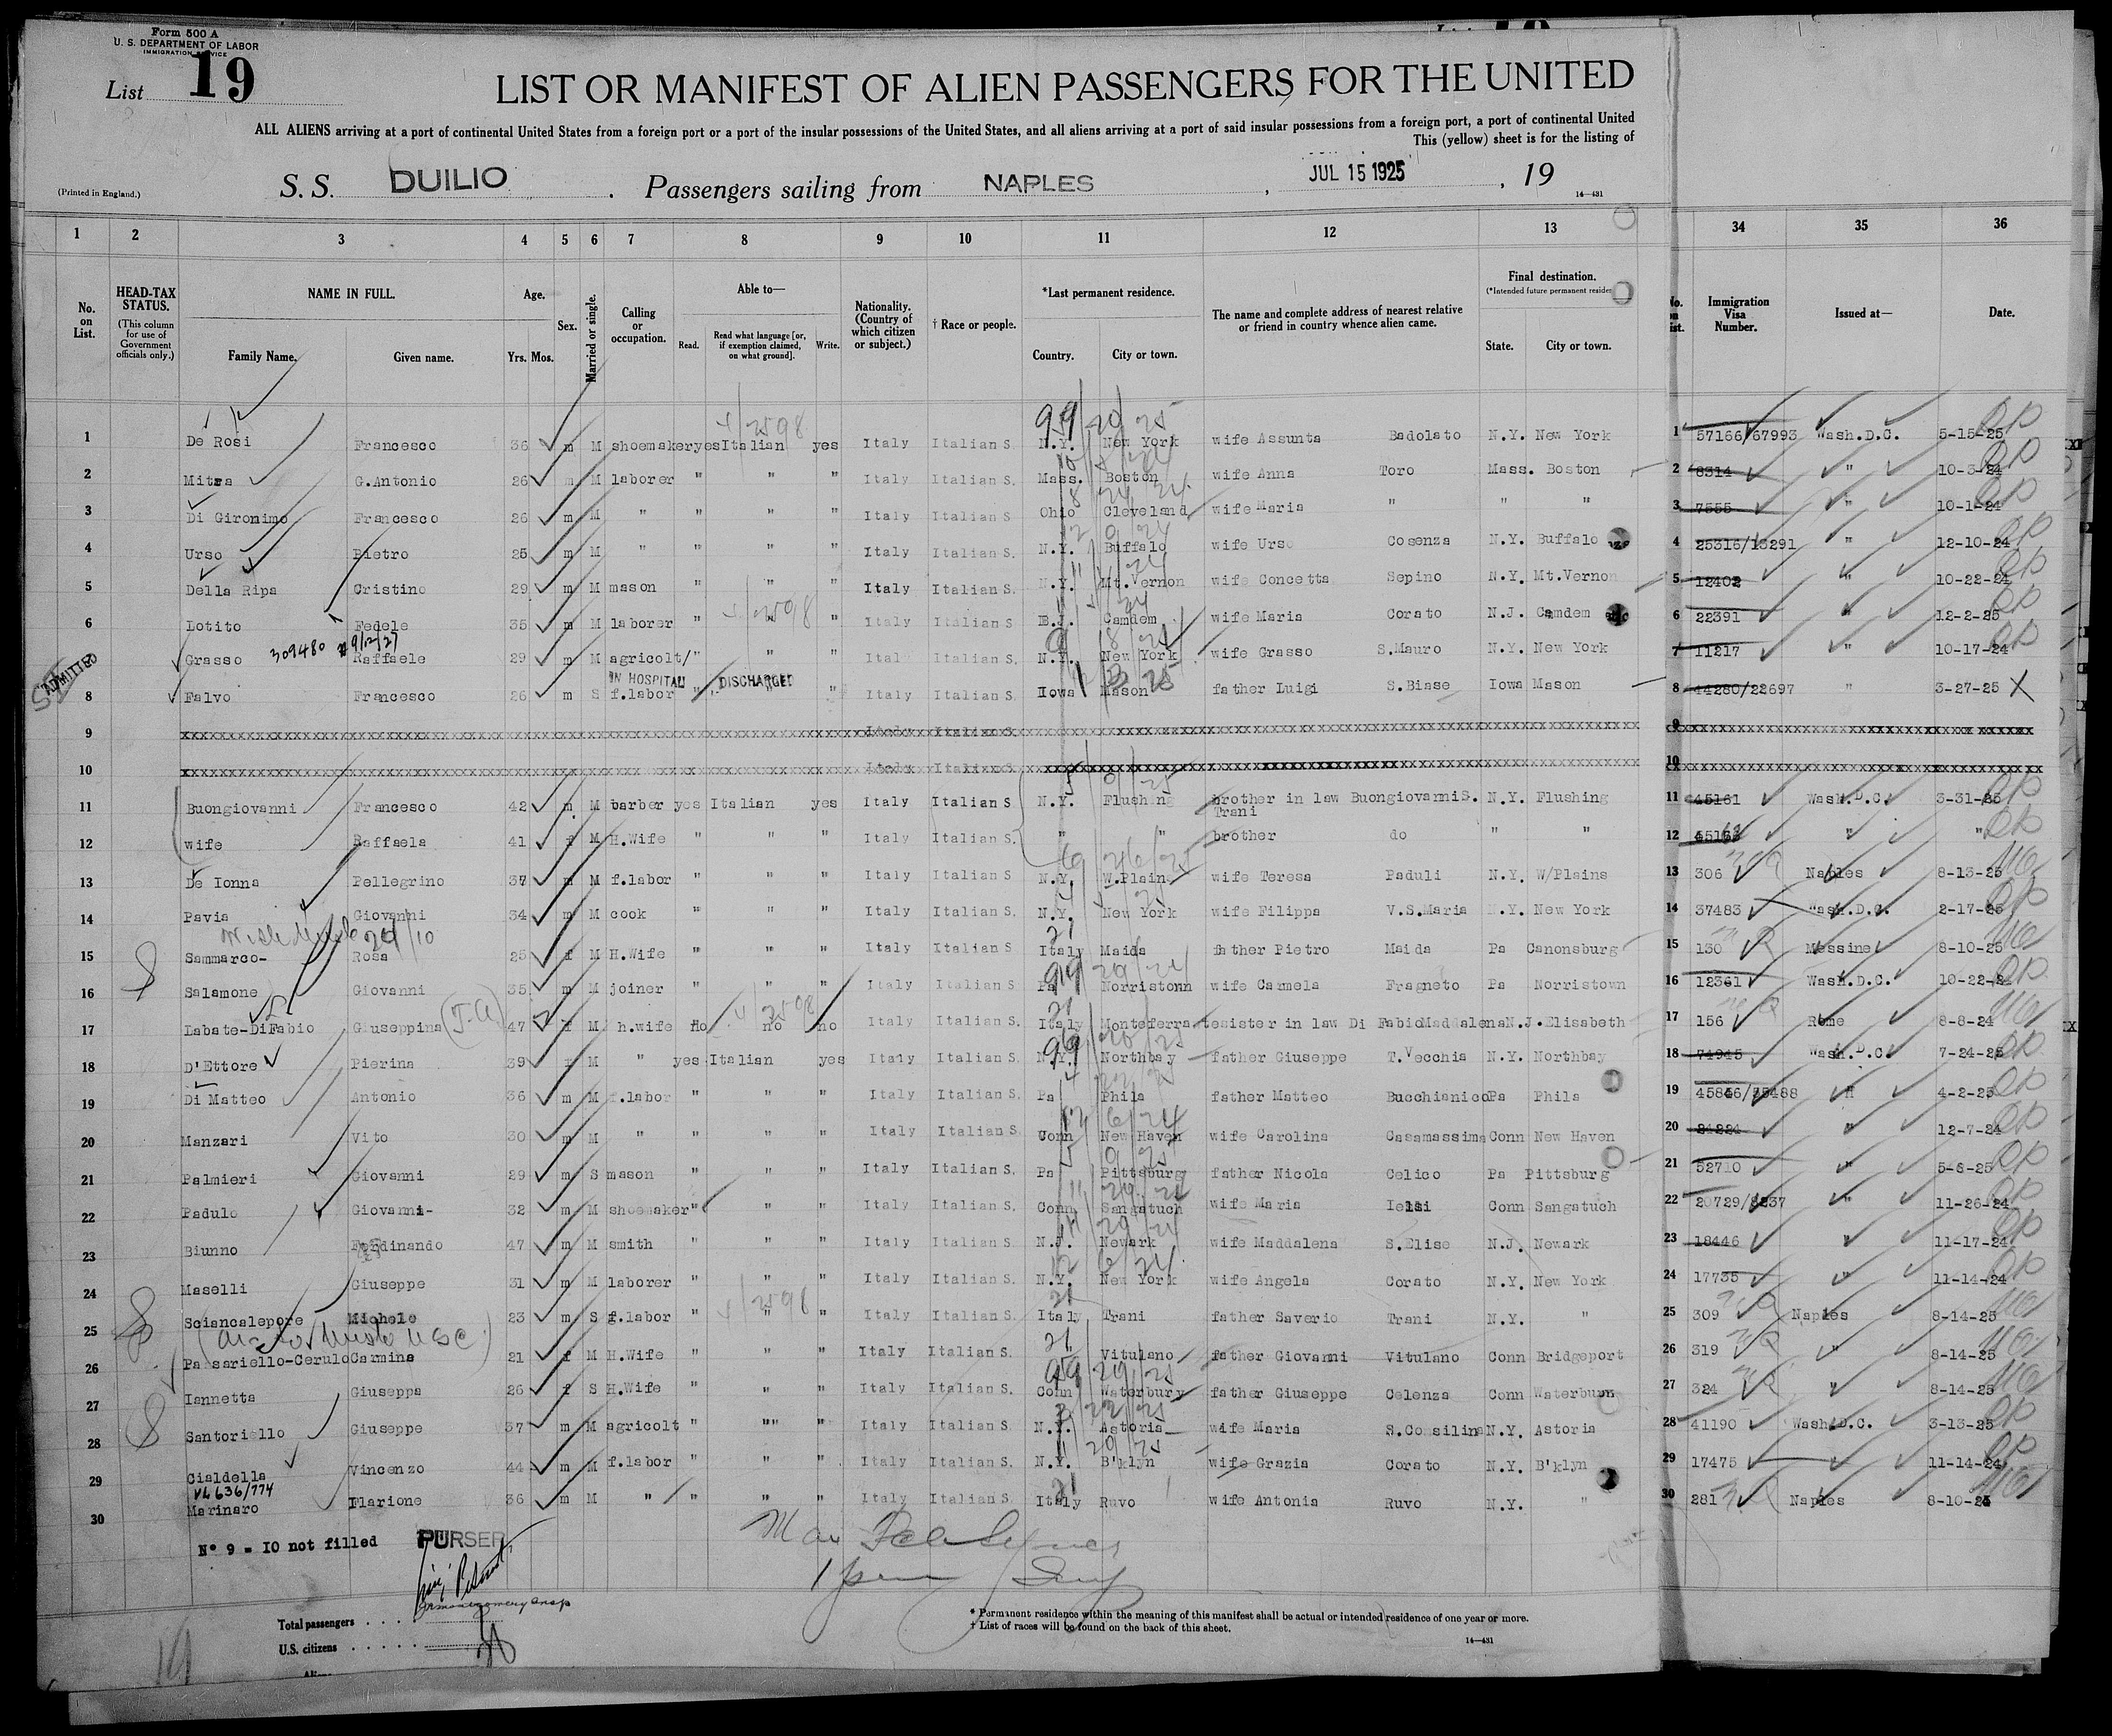 Form 500 A
U. S. DEPARTMENT OF LABOR
IMMIGRATION SERVICE
List 19
LIST OR MANIFEST OF ALIEN PASSENGERS FOR THE UNITED
ALL ALIENS arriving at a port of continental United States from a foreign port or a port of the insular possessions of the United States, and all aliens arriving at a port of said insular possessions from a foreign port, a port of continental United
This (yellow) sheet is for the listing of
(Printed in England.) S. S. DUILIO . Passengers sailing from NAPLES , JUL 15 1925 , 19
14—431
1 2 3 4 5 6 7 8 9 10 11 12 13 34 35 36
No. on List. HEAD-TAX STATUS. (This column for use of Government officials only.) NAME IN FULL. Family Name. Given name. Age. Yrs. Mos. Sex. Married or single. Calling or occupation. Able to— Read. Read what language [or, if exemption claimed, on what ground]. Write. Nationality. (Country of which citizen or subject.) † Race or people. *Last permanent residence. Country. City or town. The name and complete address of nearest relative or friend in country whence alien came. Final destination. (*Intended future permanent reside State. City or town. Immigration Visa Number. Issued at— Date.
1 De Rosi Francesco 36 m M shoemaker yes Italian yes Italy Italian S N.Y. New York wife Assunta Badolato N.Y. New York 1 57166/67993 Wash.D.C. 5-15-25
2 Mitra G.Antonio 26 m M laborer " " " Italy Italian S. Mass. Boston wife Anna Toro Mass. Boston 2 8314 " 10-3-24
3 Di Gironimo Francesco 26 m M " " " " Italy Italian S Ohio Cleveland wife Maria " " " 3 7555 " 10-1-24
4 Urso Pietro 25 m M " " " " Italy Italian S. N.Y. Buffalo wife Urso Cosenza N.Y. Buffalo 4 25316/13291 " 12-10-24
5 Della Ripa Cristino 29 m M mason " " " Italy Italian S. N.Y. Mt.Vernon wife Concetta Sepino N.Y. Mt.Vernon 5 12402 " 10-22-24
6 Lotito Fedele 35 m M laborer " " " Italy Italian S. Camdem wife Maria Corato N.J. Camdem 6 22391 " 12-2-25
309480 9/12/27
7 Grasso Raffaele 29 m M agricolt/ " " " Italy Italian S. N.Y. New York wife Grasso S.Mauro N.Y. New York 7 11217 " 10-17-24
ADMITTED IN HOSPITAL DISCHARGED
8 Falvo Francesco 26 m S f.labor " " " Italy Italian S. Iowa Mason father Luigi S.Biase Iowa Mason 8 44280/22697 " 3-27-25 X
9 Italy Italian S. 9
10 Italy Italian S. 10
11 Buongiovanni Francesco 42 m M barber yes Italian yes Italy Italian S N.Y. Flushing brother in law Buongiovanni S. Trani N.Y. Flushing 11 45161 Wash.D.C. 3-31-25
12 wife Raffaela 41 f M H.Wife " " " Italy Italian S. " " brother do " " 12 " "
13 De Ionna Pellegrino 37 m M f.labor " " " Italy Italian S N.Y. W.Plains wife Teresa Paduli N.Y. W/Plains 13 306 Naples 8-13-25
14 Pavia Giovanni 34 m M cook " " " Italy Italian S N.Y. New York wife Filippa V.S.Maria N.Y. New York 14 37483 Wash.D.C. 2-17-25
15 Sammarco- Rosa 25 f M H.Wife " " " Italy Italian S Italy Maida father Pietro Maida Pa Canonsburg 15 130 Messina 8-10-25
16 Salamone Giovanni 35 m M joiner " " " Italy Italian S Pa Norristonn wife Carmela Fragneto Pa Norristown 16 12361 Wash.D.C. 10-22-24
17 Labate-DiFabio Giuseppina 47 f M h.wife No no no Italy Italian S. Italy Monteferrante sister in law Di Fabio Maddalena N.J. Elisabeth 17 156 Rome 8-8-24
18 D'Ettore Pierina 39 f M " yes Italian yes Italy Italian S. N.Y. Northbay father Giuseppe T.Vecchia N.Y. Northbay 18 74945 Wash.D.C. 7-24-25
19 Di Matteo Antonio 36 m M f.labor " " " Italy Italian S. Pa Phila father Matteo Bucchianico Pa Phila 19 45846/35488 " 4-2-25
20 Manzari Vito 30 m M " " " " Italy Italian S. Conn New Haven wife Carolina Casamassima Conn New Haven 20 24224 " 12-7-24
21 Palmieri Giovanni 29 m S mason " " " Italy Italian S. Pa Pittsburg father Nicola Celico Pa Pittsburg 21 52710 " 5-6-25
22 Padulo Giovanni- 32 m M shoemaker " " " Italy Italian S. Conn Sangatuch wife Maria Conn Sangatuch 22 20729/8237 " 11-26-24
23 Biunno Ferdinando 47 m M smith " " " Italy Italian S. N.J. Newark wife Maddalena S.Elise N.J. Newark 23 18446 " 11-17-24
24 Maselli Giuseppe 31 m M laborer " " " Italy Italian S. N.Y. New York wife Angela Corato N.Y. New York 24 17735 " 11-14-24
25 Sciancalepore Michele 23 m S f.labor " " " Italy Italian S. Italy Trani father Saverio Trani N.Y. " 25 309 Naples 8-14-25
26 Passariello-Cerulo Carmina 21 f M H.Wife " " " Italy Italian S. " Vitulano father Giovanni Vitulano Conn Bridgeport 26 319 " 8-14-25
27 Iannetta Giuseppa 26 f S H.Wife " " " Italy Italian S. Conn Waterbury father Giuseppe Celenza Conn Waterburn 27 324 " 8-14-25
28 Santoriello Giuseppe 37 m M agricolt " "" " Italy Italian S. N.Y. Astoria wife Maria S.Consilina N.Y. Astoria 28 41190 Wash.D.C. 3-13-25
29 Cialdella Vincenzo 44 m M f.labor " " " Italy Italian S. N.Y. B'klyn wife Grazia Corato N.Y. B'klyn 29 17475 11-14-24
VL 636/774
30 Marinaro Ilarione 36 m M " " " " Italy Italian S. Italy Ruvo wife Antonia Ruvo N.Y. " 30 281 Naples 8-10-25
N° 9 = 10 not filled PURSER
Total passengers . . . .
U.S. citizens . . . . . .
* Permanent residence within the meaning of this manifest shall be actual or intended residence of one year or more.
† List of races will be found on the back of this sheet.
14—431